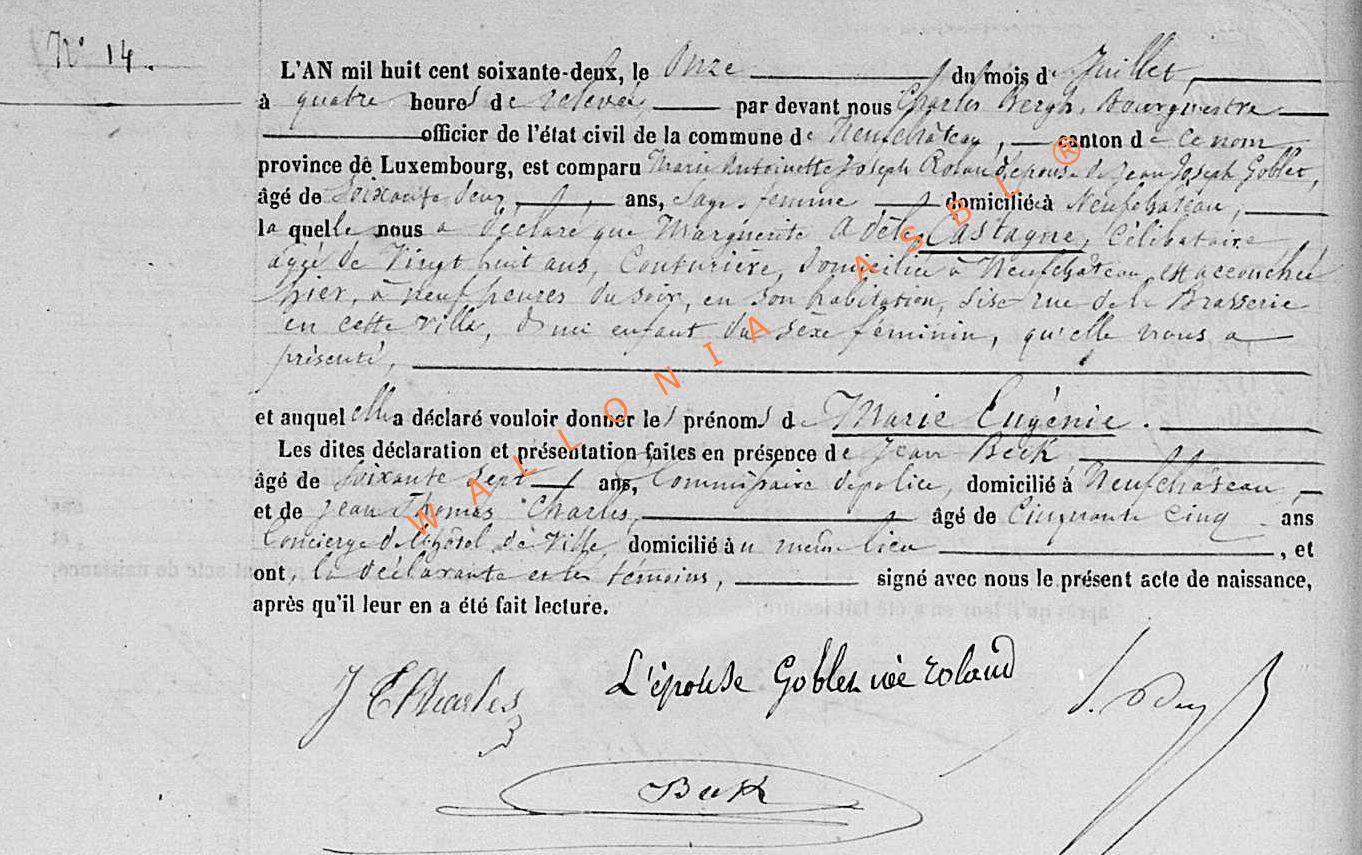 N° 14.
L'AN mil huit cent soixante-deux, le onze du mois de Juillet,
à quatre heures de relevée, par devant nous Charles Bergh, Bourgmestre
officier de l'état civil de la commune de Neufchâteau, canton de ce nom
province de Luxembourg, est comparu Marie Antoinette Joseph Roland épouse de Jean Joseph Goblet,
âgé de soixante deux, ans, Sage-femme domiciliée à Neufchâteau,
laquelle nous a déclaré que Marguerite Adèle Castagne, Célibataire
agée de Vingt huit ans, Couturière, domiciliée à Neufchâteau, est accouchée
hier, à neuf heures du soir, en son habitation, sise rue de la Brasserie
en cette ville, d'un enfant du sèxe féminin, qu'elle nous a
présenté,
et auquel elle a déclaré vouloir donner les prénoms de Marie Eugénie.
Les dites déclaration et présentation faites en présence de Jean Beck
âgé de soixante sept ans, Commissaire de police, domicilié à Neufchâteau,
et de Jean Thomas Charles, âgé de Cinquante cinq ans
Concierge de l'hôtel de Ville, domicilié au même lieu, et
ont, la déclarante et les témoins, signé avec nous le présent acte de naissance,
après qu'il leur en a été fait lecture.
J Charles
L'épouse Goblet née roland
Beck
WALLONIA ASBL ®